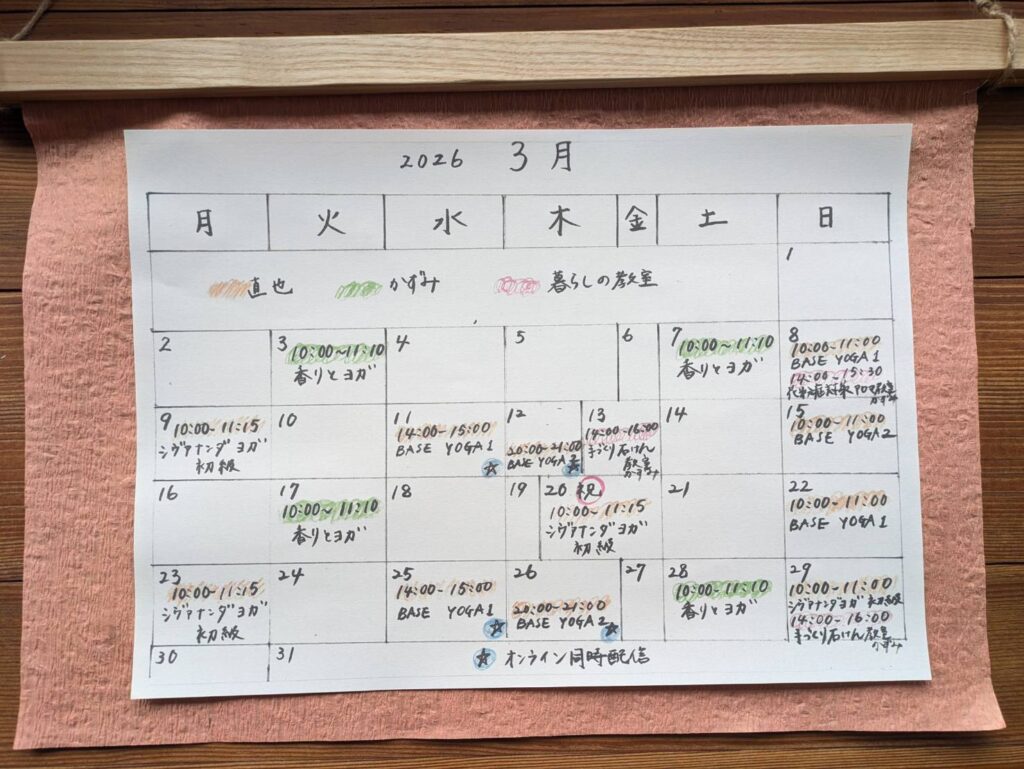 2026 3月
月 火 水 木 金 土 日
直也 かずみ 暮らしの教室
1
2
3
10:00~11:10
香りとヨガ
4
5
6
7
10:00~11:10
香りとヨガ
8
10:00~11:00
BASE YOGA1
14:00~15:30
花粉症対策アロマ教室
かずみ
9
10:00~11:15
シヴァナンダヨガ
初級
10
11
14:00~15:00
BASE YOGA1
☆
12
20:00~21:00
BASE YOGA
☆
13
14:00~16:00
手づくり石けん
教室
かずみ
14
15
10:00~11:00
BASE YOGA2
16
17
10:00~11:10
香りとヨガ
18
19
20 祝
10:00~11:15
シヴァナンダヨガ
初級
21
22
10:00~11:00
BASE YOGA1
23
10:00~11:15
シヴァナンダヨガ
初級
24
25
14:00~15:00
BASE YOGA1
☆
26
20:00~21:00
BASE YOGA2
☆
27
28
10:00~11:10
香りとヨガ
29
10:00~11:00
シヴァナンダヨガ 初級
14:00~16:00
手づくり石けん教室
かずみ
30
31
☆ オンライン同時配信